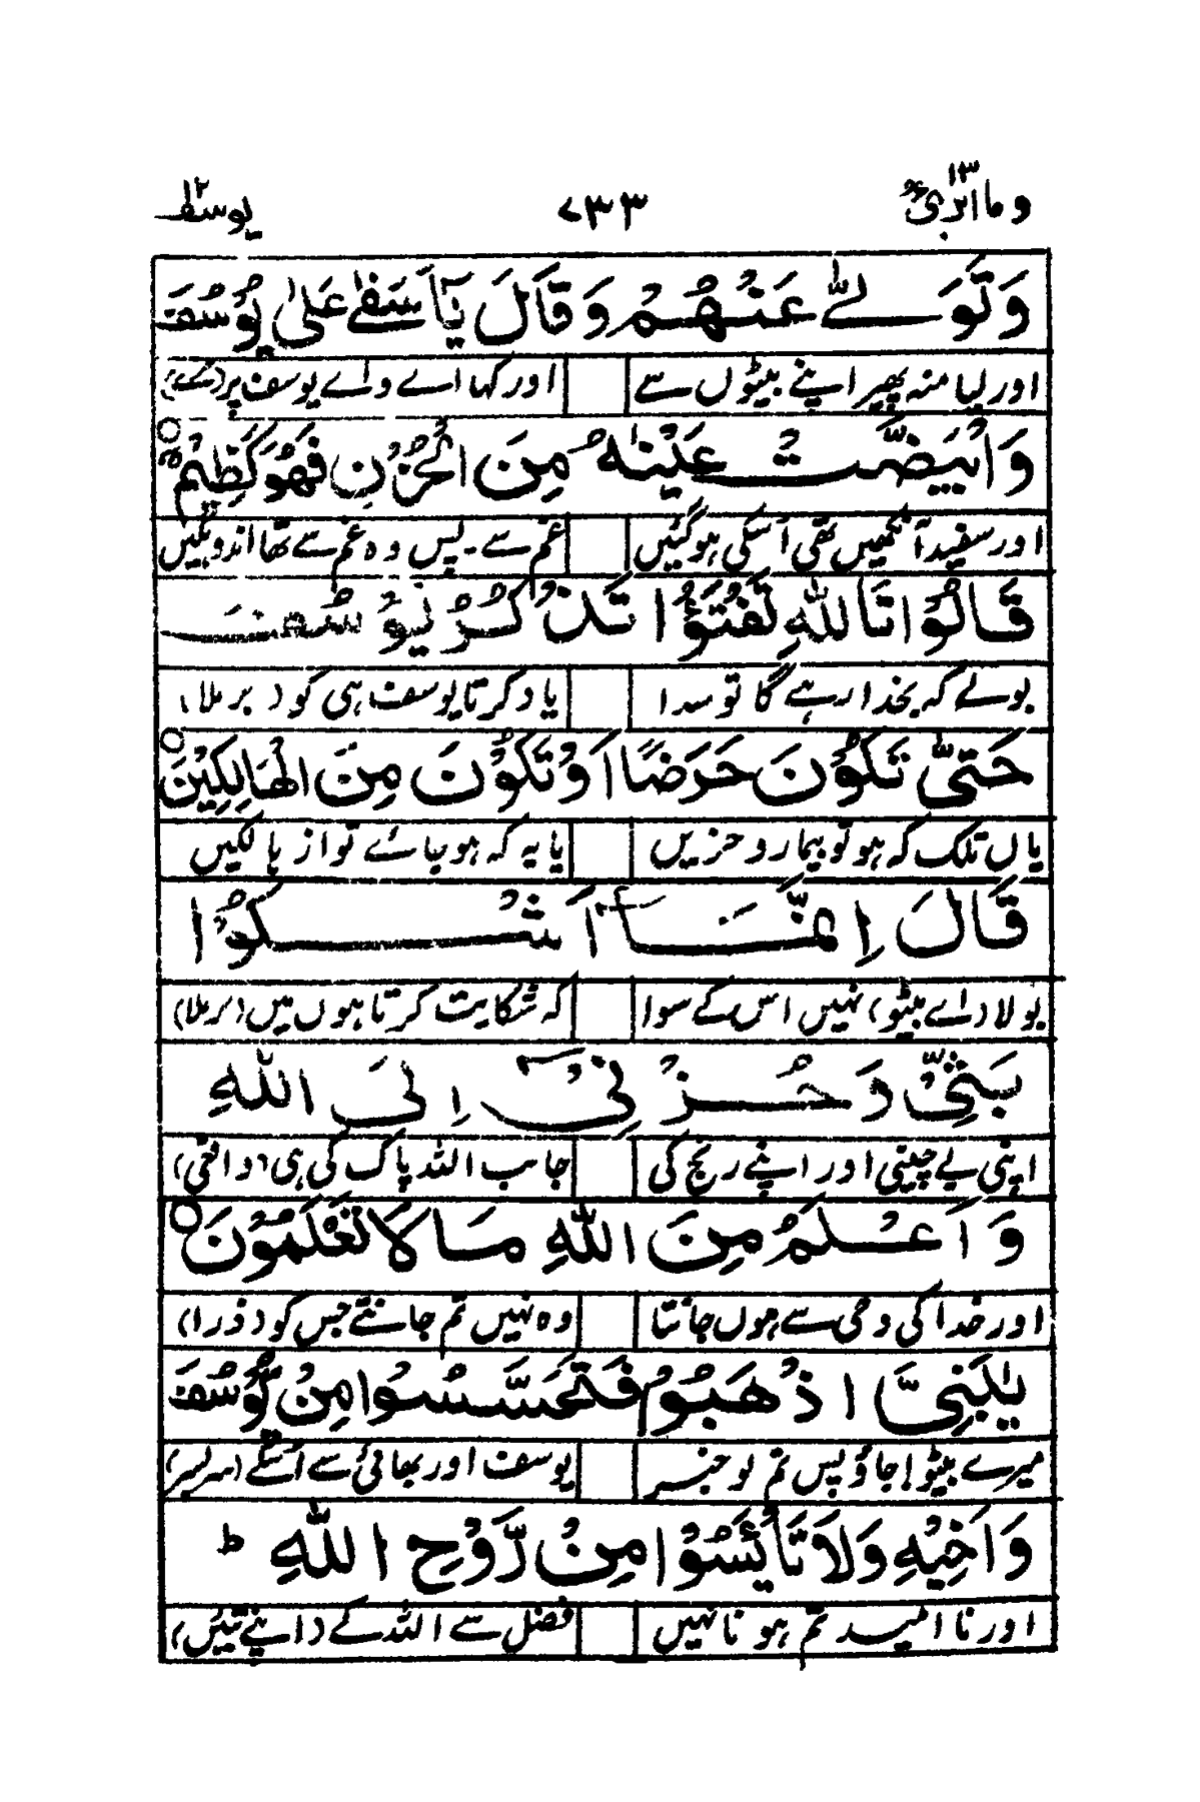 وما ابرئ ۱۳ ۷۳۳ یوسف ۱۲
وَتَوَلّٰى عَنْهُمْ وَقَالَ يٰٓاَسَفٰى عَلٰى يُوْسُفَ
اور لیا منہ پھیر اپنے بیٹوں سے اور کہا اے واے یوسف پر
وَابْيَضَّتْ عَيْنٰهُ مِنَ الْحُزْنِ فَهُوَ كَظِيْمٌ ۝
اور سفید آنکھیں تھی اُسکی ہو گئیں غم سے۔ پس وہ غم سے تھا اندوہگیں
قَالُوْا تَاللّٰهِ تَفْتَؤُا تَذْكُرُ يُوْسُفَ
بولے کہ بخدا رہے گا تو سدا یاد کرتا یوسف ہی کو (بر ملا)
حَتّٰى تَكُوْنَ حَرَضًا اَوْ تَكُوْنَ مِنَ الْهَالِكِيْنَ ۝
یاں تلک کہ ہو تو بیمار و حزیں یا یہ کہ ہو جائے تو از ہالکیں
قَالَ اِنَّمَآ اَشْكُوْا
بولا (اے بیٹو) نہیں اس کے سوا کہ شکایت کرتا ہوں میں (بر ملا)
بَثِّيْ وَحُزْنِيْٓ اِلَى اللّٰهِ
اپنی بے چینی اور اپنے رنج کی جانب اللہ پاک کی ہی (واقعی)
وَاَعْلَمُ مِنَ اللّٰهِ مَا لَا تَعْلَمُوْنَ ۝
اور خدا کی وحی سے ہوں جانتا وہ نہیں تم جانتے جس کو (ذرا)
يٰبَنِيَّ اذْهَبُوْا فَتَحَسَّسُوْا مِنْ يُّوْسُفَ
میرے بیٹو! جاؤ پس تم لو خبر یوسف اور بھائی سے اُسکے (سر بسر)
وَاَخِيْهِ وَلَا تَا۟يْـَٔسُوْا مِنْ رَّوْحِ اللّٰهِ ؕ
اور نا امید تم ہونا نہیں فضل سے اللہ کے (اپنے تئیں)